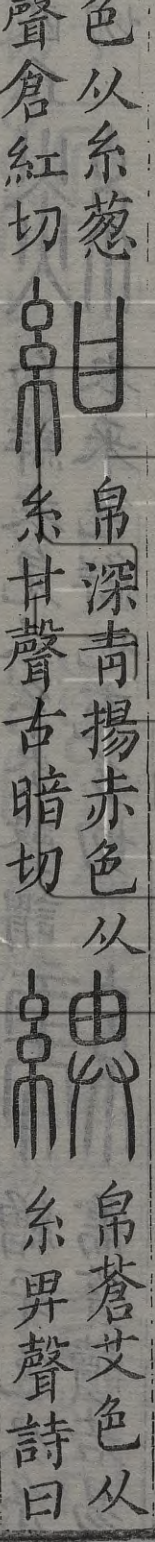 色从糸蔥
聲倉紅切
紺
帛深青揚赤色从
糸甘聲古暗切
綥
帛蒼艾色从
糸畁聲詩曰